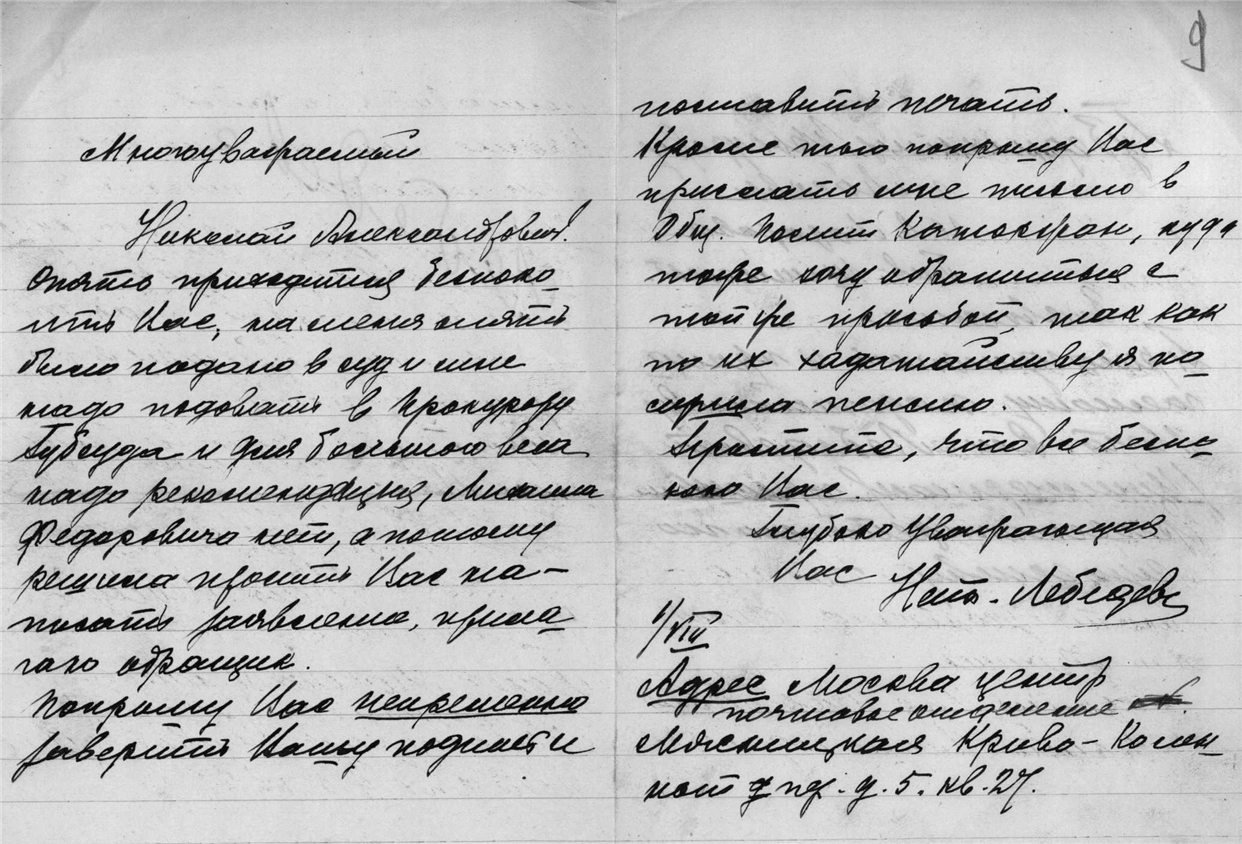 Многоуважаемый
Николай Александрович.
Опять приходится беспоко-
ить Вас, на меня опять
было подано в суд и мне
надо подовать в Прокурору
Губсуда и для большого веса
надо рекомендация, Михаила
Федоровича нет, а потому
решила просить Вас на-
писать заявление, прила-
гаю образщик.
Попрошу Вас непременно
заверить Вашу подпись и
9
поставить печать.
Кроме того попрошу Вас
прислать мне письмо в
Общ. Полит Каторжан, куда
тоже хочу обратиться с
той же прозьбой, так как
по их хадатайству я по-
лучила пенсию.
Простите, что все беспо-
кою Вас.
Глубоко Уважающая
Вас Нат. Лебедева
1/VIII
Адрес Москва центр
почтовое отделение
Мясницкая Криво-Колен-
ной п. д. 5. кв. 27.